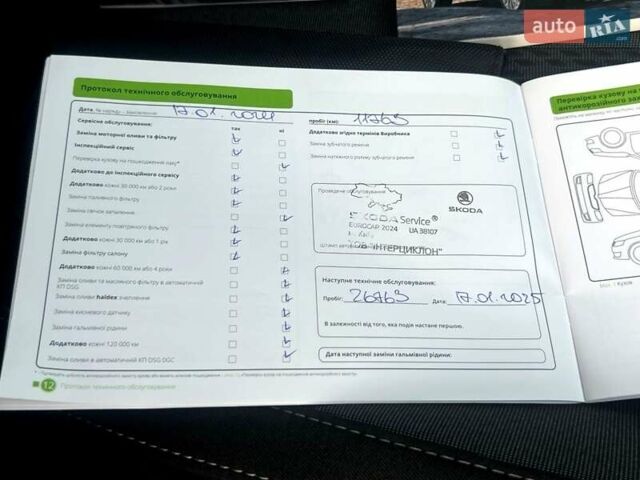 auto RIA.com
Протокол технічного обслуговування
Дата, 17.01.2024
пробіг (км): 11763
Сервісне обслуговування: так ні
Заміна моторної оливи та фільтру
Інспекційний сервіс
Перевірка кузову на пошкодження лаку*
Додатково до інспекційного сервісу
Додатково кожні 30 000 км або 2 роки
Заміна паливного фільтру
Заміна свічок запалення
Заміна елементу повітряного фільтру
Додатково кожні 30 000 км або 1 рік
Заміна фільтру салону
Додатково кожні 60 000 км або 4 роки
Заміна оливи та масляного фільтру в автоматичній
КП DSG
Заміна оливи haldex зчеплення
Заміна кисневого датчику
Заміна гальмівної рідини
Додатково кожні 120 000 км
Заміна оливи в автоматичній КП DSG DQC
12 Протокол технічного обслуговування
Додатково згідно термінів Виробника
Заміна зубчатого ременя
Заміна натяжного ролику зубчатого ременя
Проведене обслуговування
SKODA
ŠKODA Service®
EUROCAP 2024 UA 38107
м. Київ
ТОВ "ІНТЕРЦИКЛОН"
Наступне технічне обслуговування:
Пробіг: 26763 Дата: 17.01.2025
В залежності від того, яка подія настане першою.
Дата наступної заміни гальмівної рідини:
Перевірка кузову на
антикорозійного за